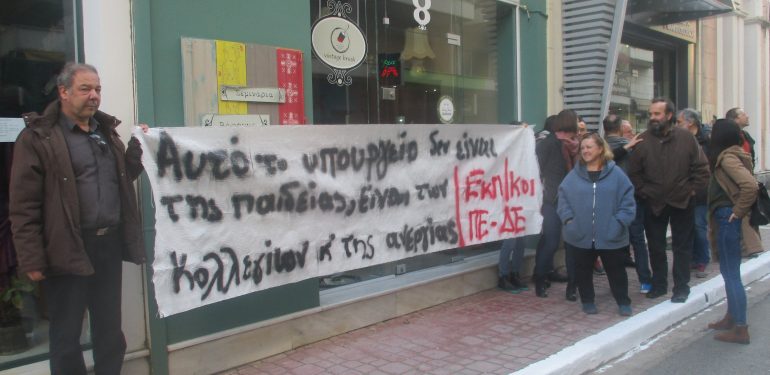 8
vintage brush
Σεμινάρια
Αυτό το υπουργείο δεν είναι
της παιδείας, Είναι των
Κολλεγίων κ' της ανεργίας
Εκπ/κοι
ΠΕ-ΔΕ